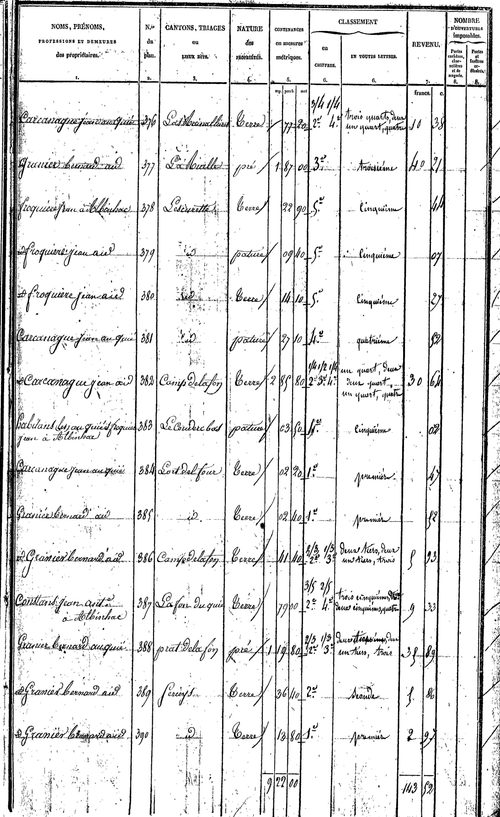 NOMS, PRÉNOMS, PROFESSIONS ET DEMEURES des propriétaires.
N.os du plan.
CANTONS, TRIAGES ou LIEUX DITS.
NATURE des PROPRIÉTÉS.
CONTENANCES EN MESURES métriques.
CLASSEMENT
EN CHIFFRES.
EN TOUTES LETTRES.
REVENU.
NOMBRE D'OUVERTURES imposables.
1. 2. 3. 4. 5. 6. 6. 7. 8. 8.
francs. c.
Carcanague jean au quié 376 Terre 77 20 3/4 1/4 2e 4e trois quarts, deux un quart, quatre 10 38
Granier bernard aid 377 pré 1 87 00 3e troisième 40 21
froquière jean à Albinhac 378 Terre 22 90 5e cinquième 44
d froquière jean aid 379 id pature 09 40 5e cinquième 07
d froquière jean aid 380 id Terre 14 10 5e cinquième 27
Carcanague jean au quié 381 id pature 27 10 4e quatrième 52
d Carcanague jean aid 382 Camp delafon Terre 2 85 80 1/4 1/2 1/4 2e 3e 4e un quart, deux deux quart, un quart, quatre 30 64
jean à Albinhac 383 pature 03 50 cinquième 02
Carcanague jean au quié 384 Lort del four Terre 02 20 1e premier 47
Granier bernard aid 385 id Terre 02 40 1e premier 52
d Granier bernard aid 386 Camp delafon Terre 41 40 2/3 1/3 2e 3e deux tiers, deux un tiers, trois 5 93
Constant jean à Albinhac 387 La fon du quié Terre 79 00 3/5 2/5 2e 4e trois cinquièmes, deux deux cinquièmes, quatre 9 33
Granier bernard au quié 388 prat delafon pré 1 19 80 2/3 1/3 2e 3e un tiers, trois 35 89
d Granier bernard aid 389 Terre 36 40 2e seconde 5 86
d Granier bernard aid 390 id Terre 13 80 1e premier 2 97
9 22 00 143 52